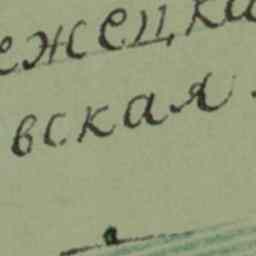 ежецка
вская